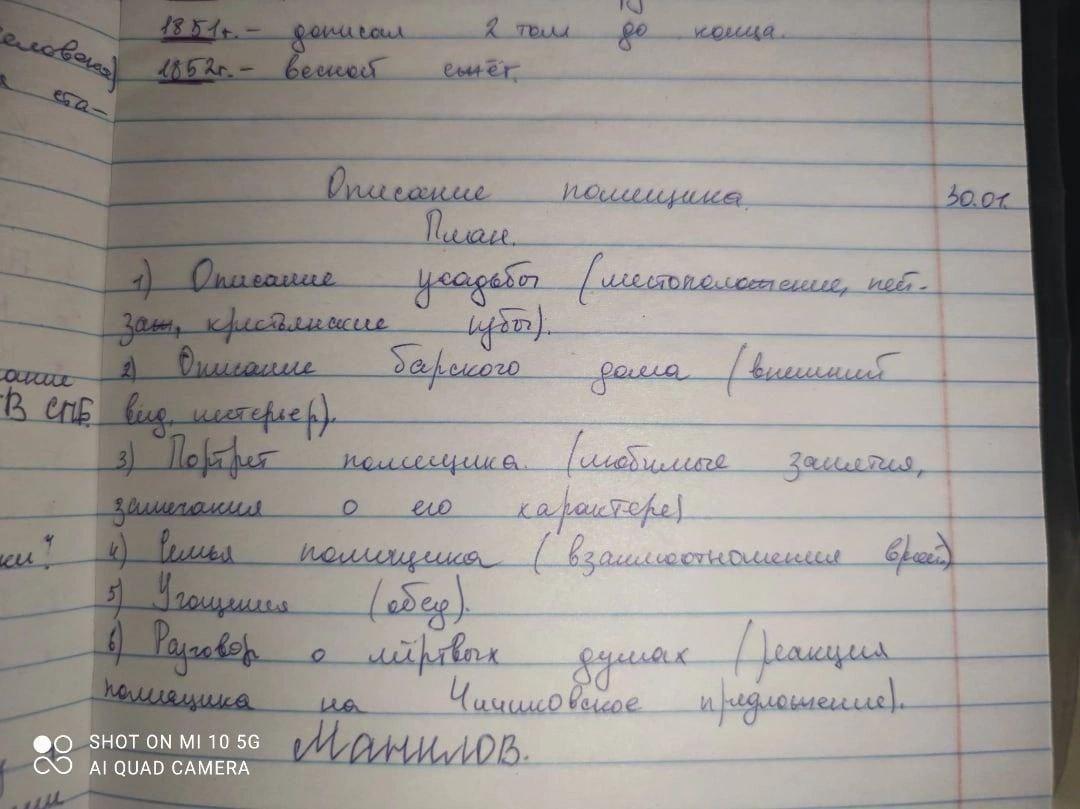 1851г. – дописал 2 том до конца.
1852г. – весной сжёг.
еловская)
ста-
Описание помещика. 30.01.
План.
1) Описание усадьбы (местоположение, пей-
заж, крестьянские избы).
2) Описание барского дома (внешний
В СПБ. вид, интерьер).
3) Портрет помещика. (любимые занятия,
замечания о его характере)
4) Семья помещика (взаимоотношения в
5) Угощения (обед).
6) Разговор о мёртвых душах (реакция
помещика на Чичиковское предложение).
Манилов.
SHOT ON MI 10 5G
AI QUAD CAMERA